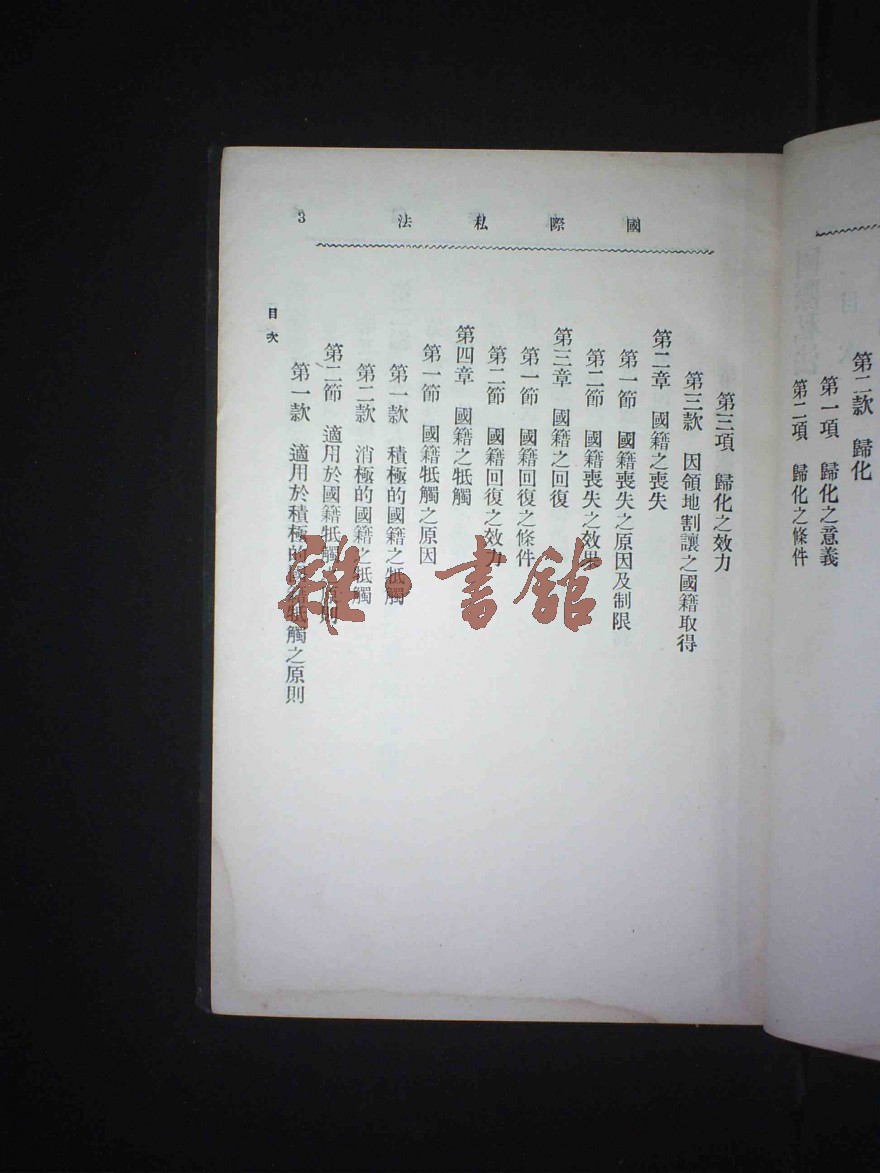 第二款　歸化
第一項　歸化之意義
第二項　歸化之條件
國際私法
3
第三項　歸化之效力
第三款　因領地割讓之國籍取得
第二章　國籍之喪失
第一節　國籍喪失之原因及制限
第二節　國籍喪失之效果
第三章　國籍之回復
第一節　國籍回復之條件
第二節　國籍回復之效力
第四章　國籍之牴觸
第一節　國籍牴觸之原因
第一款　積極的國籍之牴觸
第二款　消極的國籍之牴觸
第二節　適用於國籍牴觸之原則
第一款　適用於積極的國籍牴觸之原則
目次
雜·書館